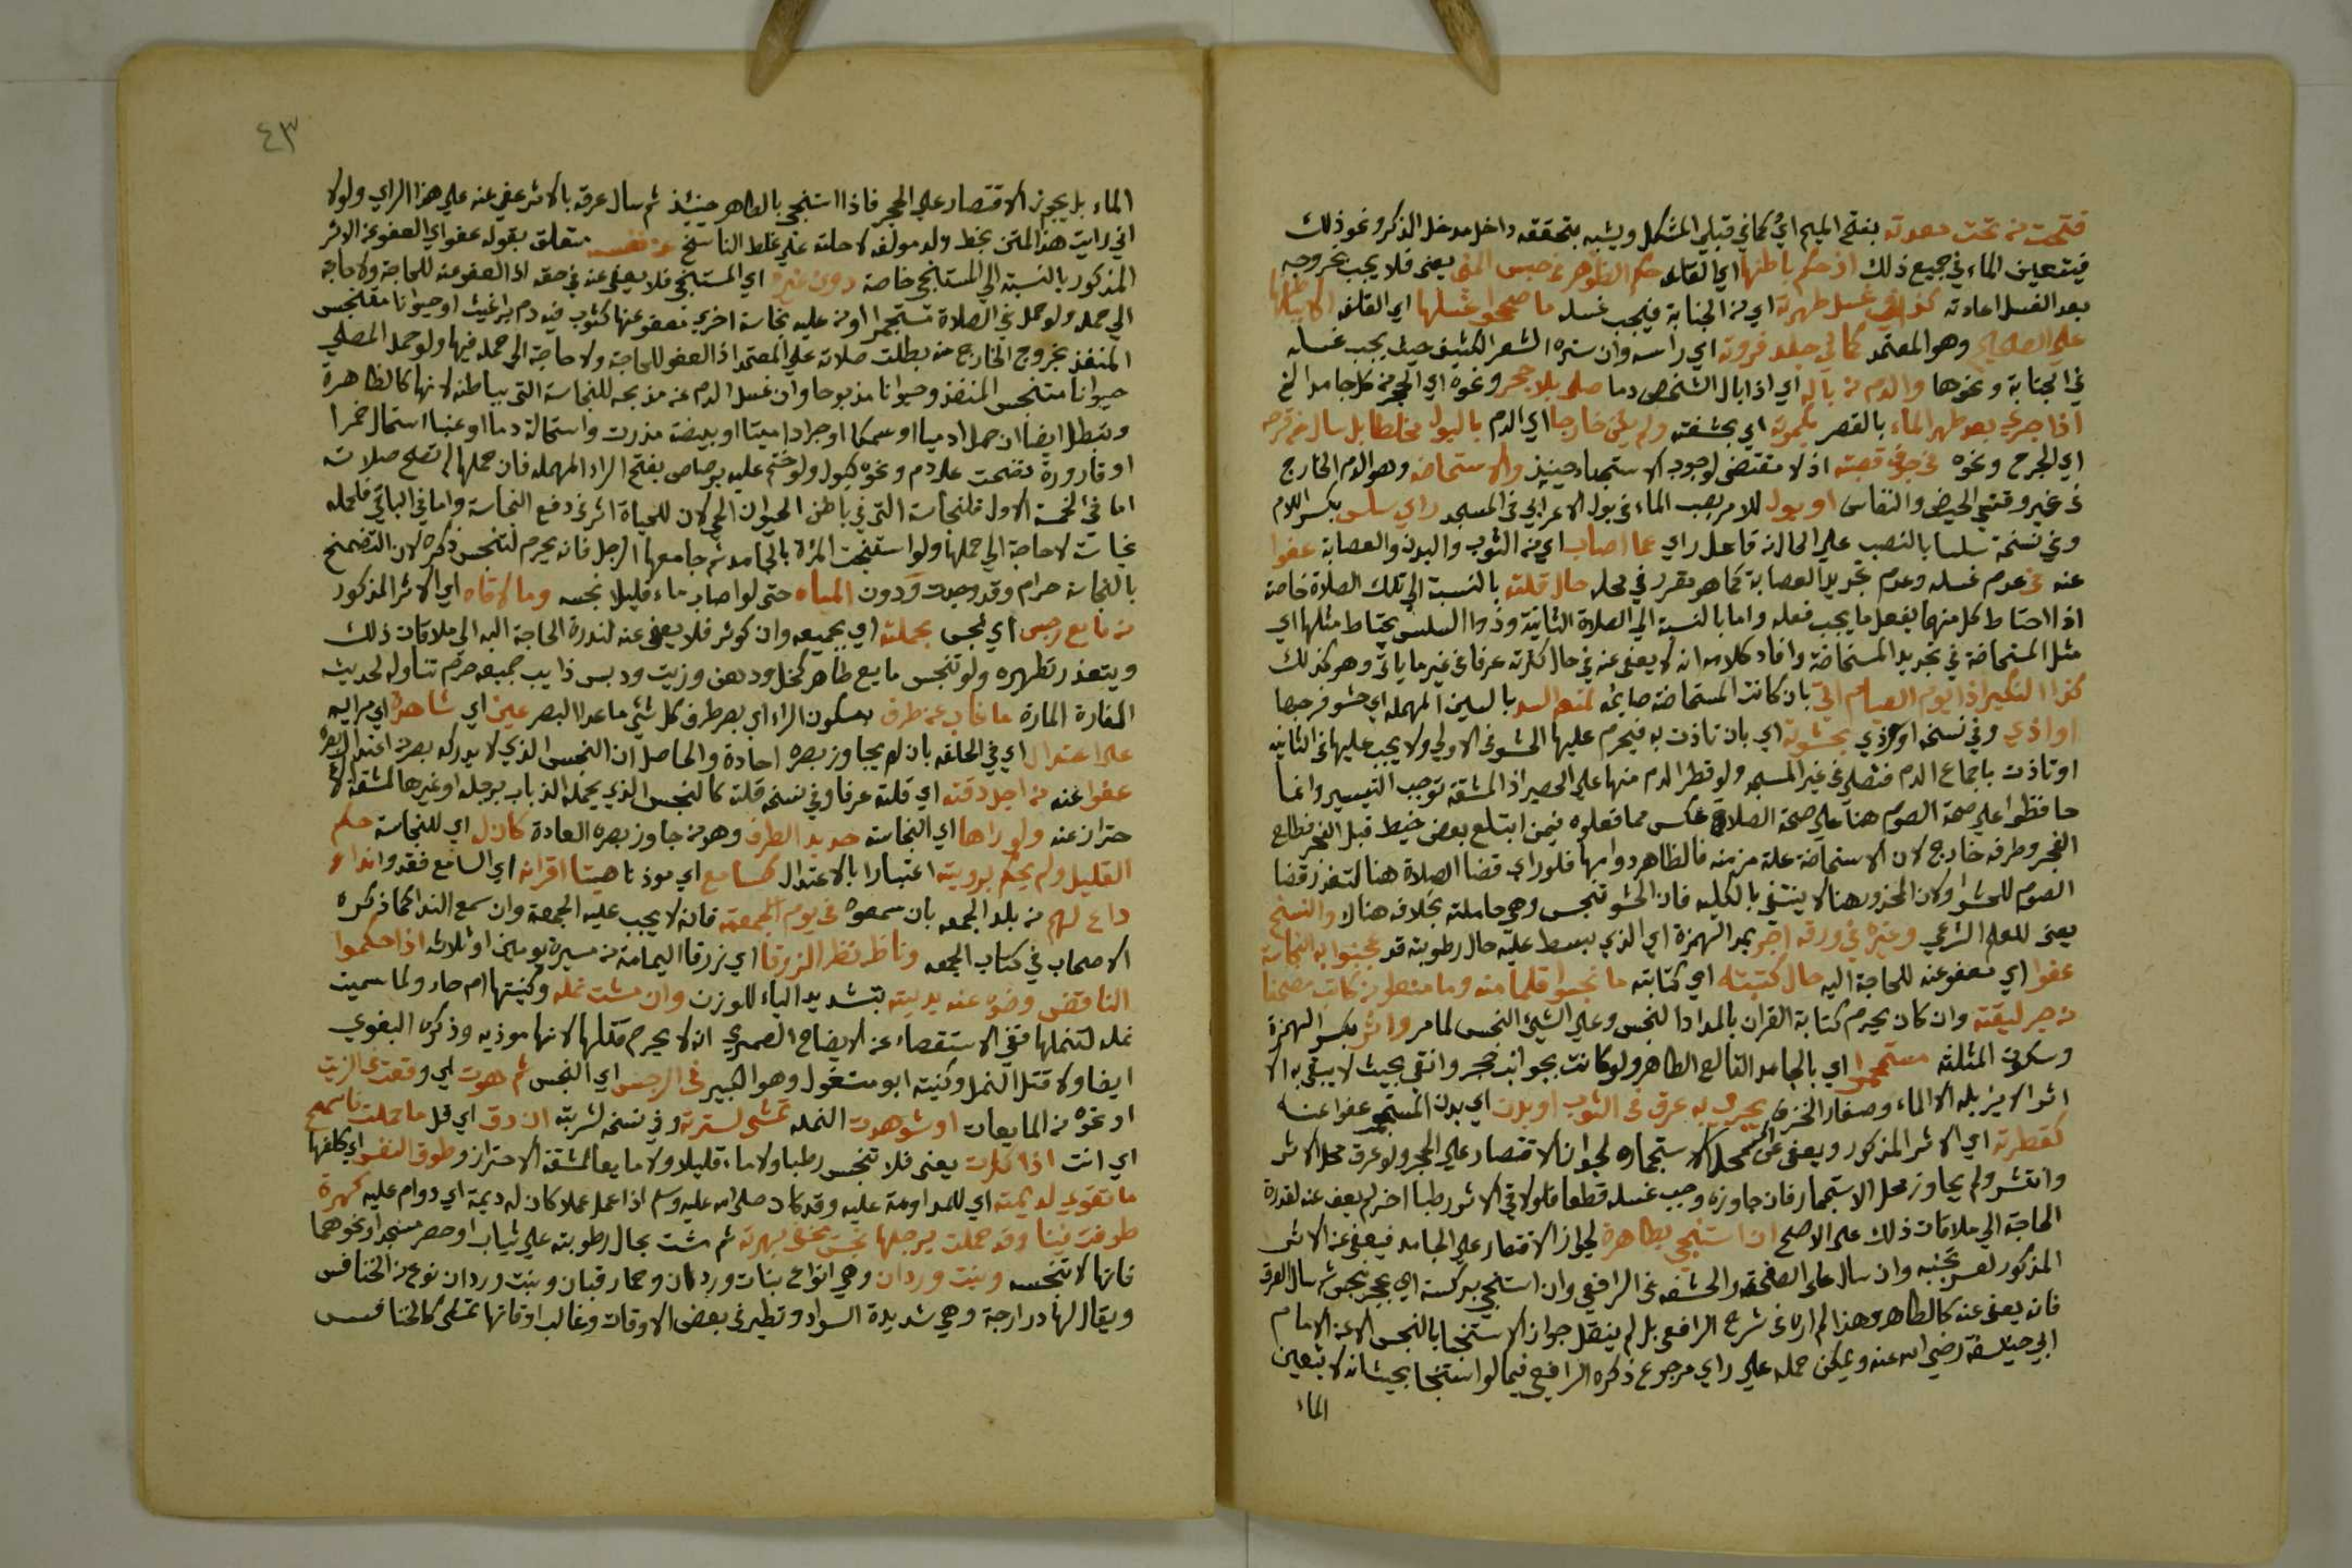 فتحت من تحت معدته بفتح الميم اي كما في قبلي المشكل ويشبه بتحققه داخل مدخل الذكر ونحو ذلك
فيتعين الماء في جميع ذلك اذ حكم باطنها اي القلفة حكم الظاهر حبس المني يعني فلا يجب بخروجه
بعد الغسل اعادته كذا في غسل طهرية اي من الجنابة فيجب غسله ما صححوا غسلها اي القلفة
على الصحيح وهو المعتمد كما في جلد فروة اي راسه وان ستره الشعر الكثيف حيث يجب غسله
في الجنابة ونحوها والدم من باله اي اذا بال الشخص دما صلى بلا حجر ونحوه اي الحجر من كل جامد الخ
اذا جرى بعد طهر الماء بالقصر اي بحشفته ولم يكن خارجا اي الدم بالبول مخلطا بل سال من قرحه
اي الجرح ونحوه في جوف قصبته اذ لا مقتضى لوجوب الاستنجاء حينيذ والاستحاضه وهو الدم الخارج
في غير وقتي الحيض والنفاس او بول للامر بصب الماء في بول الاعرابي في المسجد راي سلس بكسر اللام
وفي نسخة سلسا بالنصب على الحال من فاعل راي عما اصاب اي من الثوب والبدن والعصابة عفوا
عنه في عدم غسله وعدم تجديد العصابة كما هو مقرر في محله حال قلته بالنسبة الي تلك الصلاة خاصة
اذا احتاط كل منهما بفعل ما يجب فعله واما بالنسبة الي الصلاة الثانية وذوا السلس يحتاط مثلها اي
مثل المستحاضة في تجديد المستحاضة وافاد كلامه انه لا يعفى عنه في حال كثرته عرفا في غير ما ياتي وهو كذلك
كذا الكثير اذا يوم الصيام اتي بان كانت المستحاضة صايمه لمنعه السد بالسين المهمله اي حشو فرجها
او اذي وفي نسخه او وذي بحشوته اي بان تاذت به فيحرم عليها الحشو في الاولي ولا يجب عليها في الثانيه
او تاذت باجماع الدم فتصلي في غير المسجد ولو قطر الدم منها على الحصير اذ المشقه توجب التيسير وانما
حافظوا على صحة الصوم هنا على صحة الصلاة عكس ما فعلوه فيمن ابتلع بعض خيط قبل الفجر فطلع
الفجر وطرفه خارج لان الاستحاضة علة مزمنه فالظاهر دوامها فلو راي قضا الصلاة هنا لتعذر قضا
الصوم للحشو ولان المحذور هنا لا ينتفي بالكليه فان الحشو تنجس وهي حاملته بخلافه هناك والنسخ
يعني للعلم الشرعي وغيره في ورقه اجر بمد الهمزة اي الذي يبسط عليه حال رطوبته قد عجنوا به النجاسة
عفوا اي معفو عنه للحاجة اليه حال كتبته اي كتابته ما نجسوا قلما منه وما منعوا من كاتب مصحفا
من حبر ليقته وان كان يحرم كتابة القران بالمداد النجس وعلي الشيء النجس لما مر واثر بكسر الهمزة
وسكون المثلثه مستجمرا اي بالجامد القالع الطاهر ولو كانت بجوانب حجر وانقى بحيث لا يبقى به الا
اثر لا يزيله الا الماء وصغار الخزف يجري به عرق في الثوب او بدن اي بدن المستجمر عفوا عنه
كقطرته اي الاثر المذكور ويعفى عن محل استجماره لجواز الاقتصار على الحجر ولو عرق محل الاثر
وانتشر ولم يجاوز محل الاستجمار فان جاوزه وجب غسله قطعا فلو لاقى الاثر رطبا اخر لم يعف عنه لندرة
الحاجة الي ملاقات ذلك على الاصح ان استنجي بطاهرة لجواز الاقتصار على الجامد فيعفي عن الاثر
المذكور لعسر تجنبه وان سال على الصفحة والحشفه في الرافعي وان استنجي بركسة اي بحجر نجس ثم سال العرق
فانه يعفى عنه كالطاهر وهذا لم اره في شرح الرافعي بل لم ينقل جواز الاستنجا بالنجس الا عن الامام
ابي حنيفة رضي الله عنه ويمكن حمله على راي مرجوع ذكره الرافعي فيما لو استنجا بحيث انه لا يتعين
الماء
٤٣
الماء بل يجوز الاقتصار على الحجر فاذا استنجي بالطاهر حينئذ ثم سال عرقه بالاثر عفي عنه علي هذا الراي ولولا
اني رايت هذا المتن بخط ولد مولفه لاحلته علي غلط الناسخ عن نفسه متعلق بقوله عفوا اي العفو عن الاثر
المذكور بالنسبة الي المستنجي خاصة دون غيره اي المستنجي فلا يعفى عنه في حقه اذ العفو عنه للحاجة ولا حاجة
الي حمله ولو حمل في الصلاة مستجمرا او من عليه نجاسة اخري معفو عنها كثوب فيه دم براغيث او حيوانا متنجس
المنفذ بخروج الخارج منه بطلت صلاته علي المعتمد اذ العفو للحاجة ولا حاجة الي حمله فيها ولو حمل المصلي
حيوانا متنجس المنفذ وحيوانا مذبوحا وان غسل الدم عن مذبحه للنجاسة التي بباطنه لانها كالظاهرة
وتبطل ايضا ان حمل ادميا او سمكا او جرادا ميتا او بيضة مذرت واستحالة دما او عنبا استحال خمرا
او قارورة ختمت علي دم ونحوه كبول ولو ختم عليه برصاص بفتح الراء المهمله فان حملها لم تصح صلاته
اما في الخمسة الاول فللنجاسة التي في باطن الحيوان الحي لان للحياة اثر في دفع النجاسة واما في الباقي فلحمله
نجاسة لا حاجة الي حملها ولو استنجت المراة بالجامد ثم جامعها الرجل فانه يحرم لتنجس ذكره لان التضمخ
بالنجاسة حرام وقد وجدت ودون المياه حتى لو اصاب ماء قليلا نجسه وما لاقاه اي الاثر المذكور
من مايع رجس اي نجس بجملته اي بجميعه وان كوثر فلا يعفى عنه لندرة الحاجة اليه الي ملاقات ذلك
ويتعذر تطهيره ولو تنجس مايع طاهر كخل ودهن وزيت ودبس ذايب جميعه حرم تناوله لحديث
الفارة المارة ما غاب عن طرف بسكون الراء اي بصر طرف كل شئ ما عدا البصر عين اي شاهدة اي مراىه
على اعتدال اي في الخلقه بان لم يجاوز بصره احادة والحاصل ان النجس الذي لا يدركه بصر من اعتدال بصره
عفوا عنه من اجل دقته اي قلته عرفا وفي نسخه قلته كالنجس الذي يحمله الذباب برجله او غيرها لمشقة الا
حتراز عنه ولو راها اي النجاسة حديد الطرف وهو من جاوز بصره العادة كان ل اي للنجاسة حكم
القليل ولم يحكم برويته اعتبارا بالاعتدال كسامع اي موذنا صيتا اقرانه اي السامع فقدوا نداء
داع لهم من بلد الجمعه بان سمعوه في يوم الجمعه فانه لا يجب عليه الجمعة وان سمع الندا كما ذكره
الاصحاب في كتاب الجمعه وناظر نظر الزرقا اي زرقا اليمامة من مسيرة يومين او ثلاثه اذا حكموا
الناقض وضوه عنه يديته بتشديد الياء للوزن وان مشت نمله وكنيتها ام حاء ولما سميت
نمله لتنملها ففي الاستقصاء عن الايضاح الصمري انه لا يحرم قتلها لانها موذيه وذكره البغوي
ايضا ولا قتل النمل وكنيته ابو مشغول وهو الكبير في الرجس اي النجس ثم هوت اي وقعت في الزيت
او نحوه من المايعات او شوهدت النمله تمشي لسترته وفي نسخه لشربته ان دق اي قل ما حملت فاسمع
اي انت اذا ذكرت يعني فلا تنجس رطبا ولا ماء قليلا ولا مايعا لمشقة الاحتراز وطوق النفس اي كلفها
ما تقوي لديمته اي للمداومة عليه وقد كان صلى الله عليه وسلم اذا عمل عملا كان له ديمة اي دوام عليه كهرة
طوفت فينا وقد حملت برجلها نجس تخفى بهرته ثم مشت بحال رطوبته على ثياب او حصر مسجد او نحوهما
فانها لا تنجسه وبنت وردان وهي انواع بنات وردان وحمار قبان وبنت وردان نوع من الخنافس
ويقال لها درارجة وهي شديدة السواد وتطير في بعض الاوقات وغالب اوقاتها تمشي كالخنافس